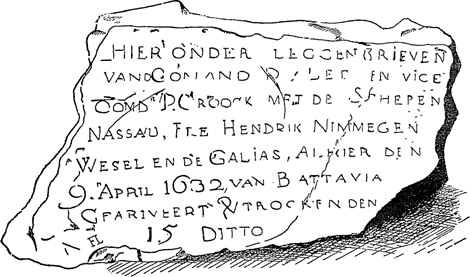 HIER ONDER LEGGEN BRIEVEN
VAND COMAND D. VLEC EN VICE
COMD P. CROOCK MET DE SCHEPEN
NASSAU, FRE HENDRIK NIMMEGEN
WESEL EN DE GALIAS, ALHIER DEN
9. APRIL 1632, VAN BATTAVIA
GEARIVEERT & VTROCKEN DEN
15 DITTO